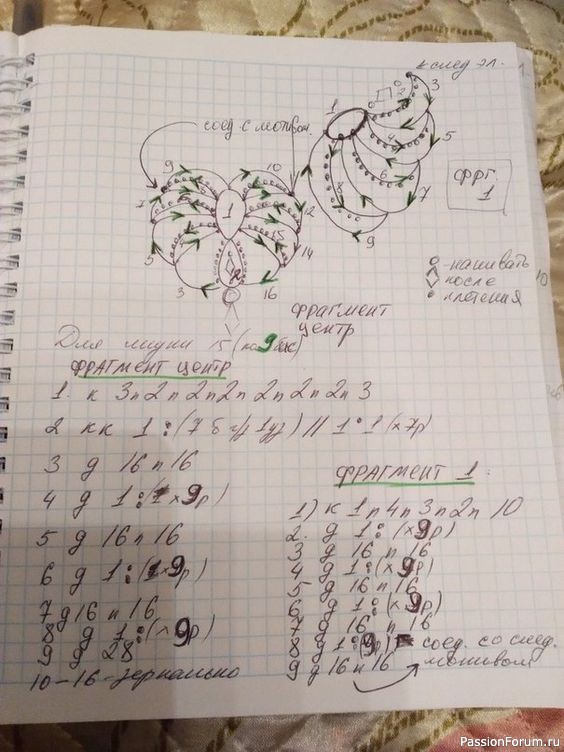 к след эл.
соед. с мотивом.
1
2
3
4
5
6
7
8
9
фрг. 1
9
10
7
1
12
5
15
14
3
2
16
фрагмент центр
о - нашивать
◊ после
• плетения
Для лицки 15 (по 9 бис)
ФРАГМЕНТ ЦЕНТР
1. к 3п 2п 2п 2п 2п 2п 2п 3
2 кк 1 : (7 б 1уз) // 1 : 1 (х7р)
3 д 16 п 16
4 д 1 : (х9р)
5 д 16 п 16
6 д 1 : (х9р)
7 д 16 п 16
8 д 1 : (х9р)
9 д 28
10-16 - зеркально
ФРАГМЕНТ 1.
1) к 1п 4п 3п 2п 10
2. д 1 : (х9р)
3 д 16 п 16
4 д 1 : (х9р)
5 д 16 п 16
6 д 1 : (х9р)
7 д 16 п 16
8 д 1 : (9р) соед. со след. мотивом
9 д 16 п 16
PassionForum.ru